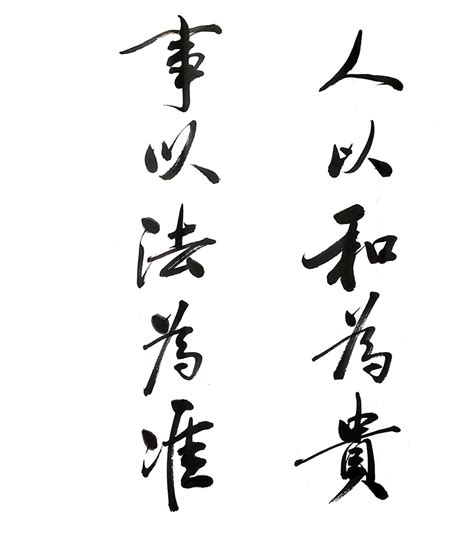 人以和為貴
事以法為准